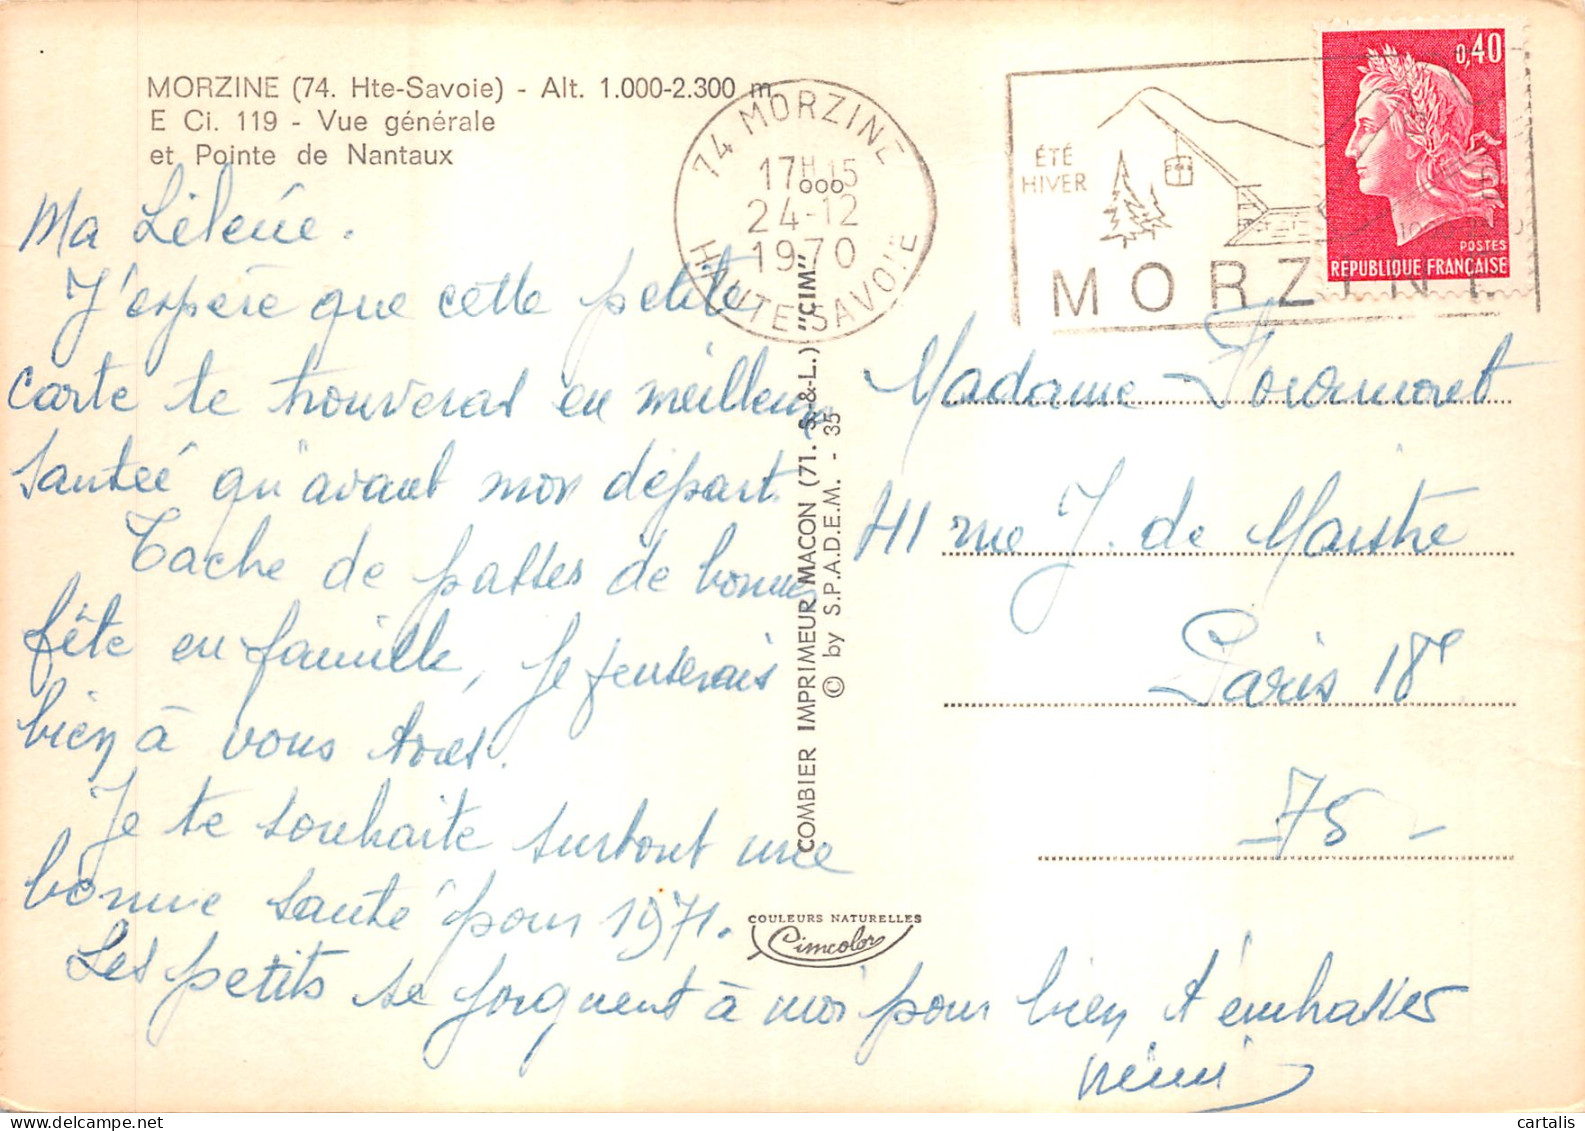 MORZINE (74. Hte-Savoie) - Alt. 1.000-2.300 m.
E Ci. 119 - Vue générale
et Pointe de Nantaux
74 MORZINE
17H15
24-12
1970
HAUTE-SAVOIE
ÉTÉ
HIVER
MORZINE
0,40
POSTES
REPUBLIQUE FRANÇAISE
Ma
J'espère que cette petite
carte te trouveras en meilleure
santeé qu'avant mon départ.
Tache de passer de bonnes
fête en famille, je penserais
bien à vous tous.
Je te souhaite surtout une
bonne santé pour 1971.
Les petits se joignent à moi pour bien t'embrasser
COMBIER IMPRIMEUR MACON (71. S.-&-L.) "CIM"
© by S.P.A.D.E.M. - 35
COULEURS NATURELLES
Cimcolor
Madame
41 rue J. de Maistre
Paris 18e
- 75 -
cartalis